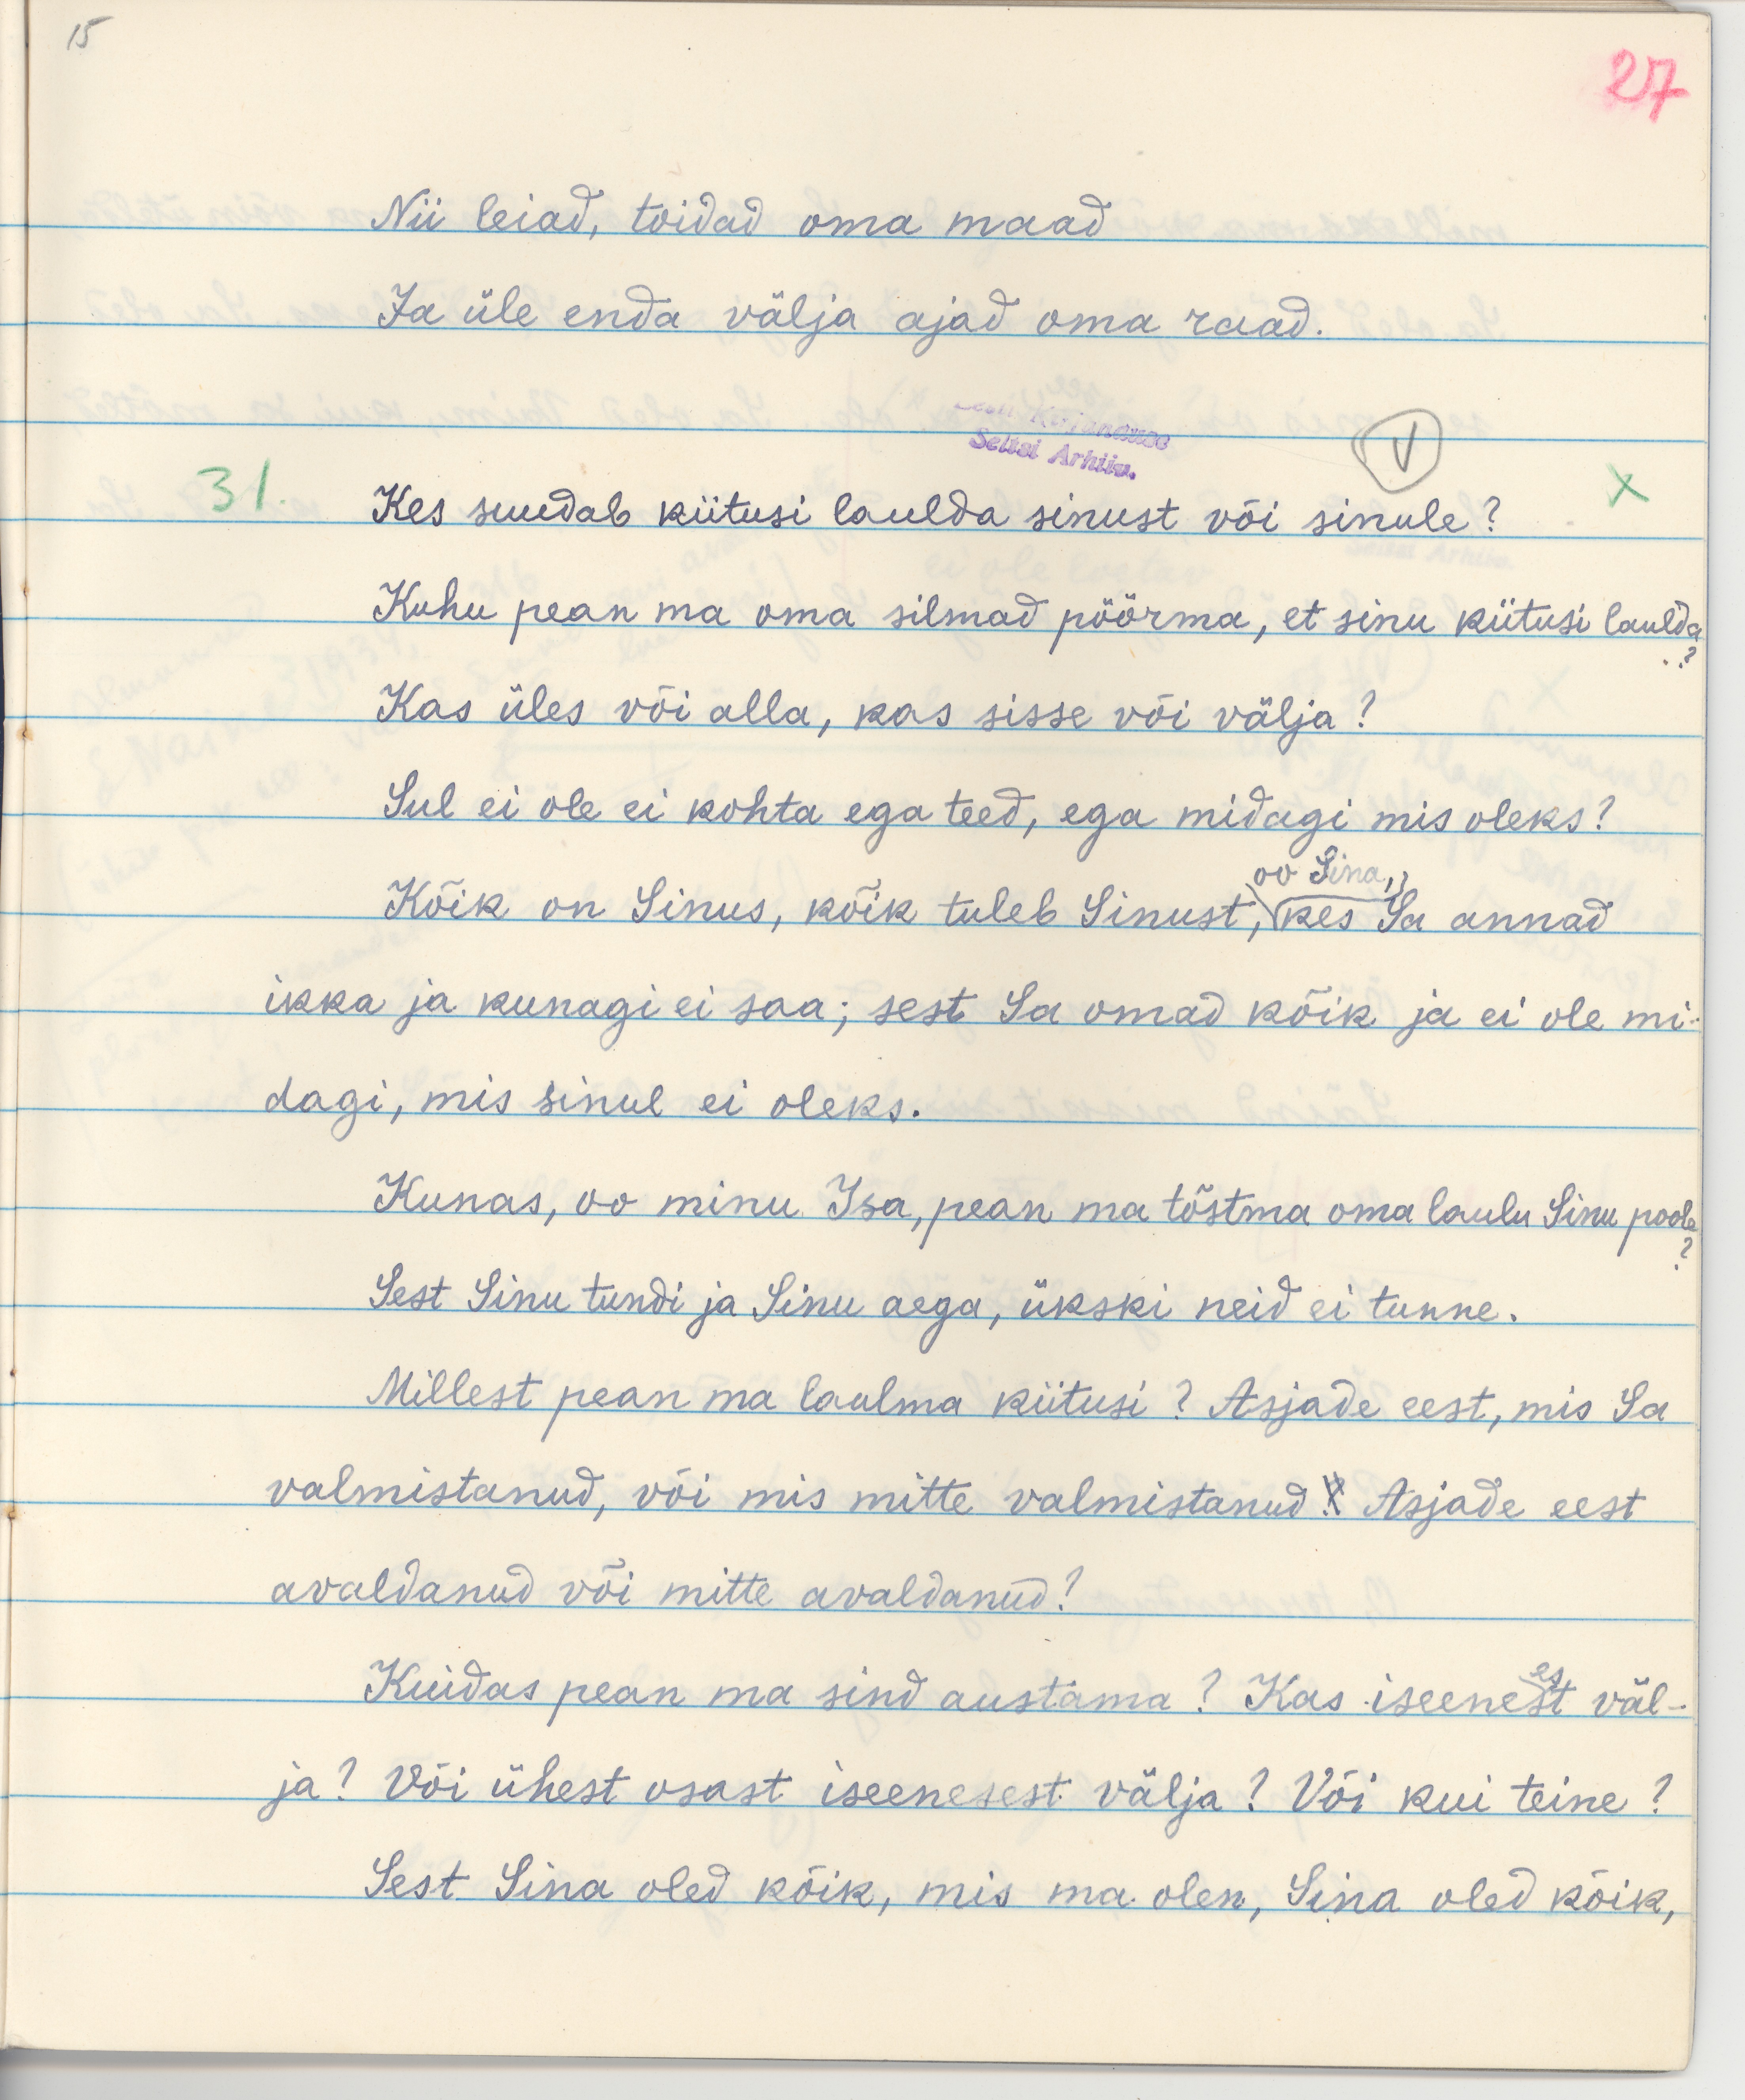 15
27
Nii leiad, toidad oma maad
Ja üle enda välja ajad oma raad.
Eesti Kirjanduse
Seltsi Arhiiv.
V
31. Kes suudab kiitusi laulda sinust või sinule? x
Kuhu pean ma oma silmad pöörma, et sinu kiitusi laulda
?
Kas üles või alla, kas sisse või välja?
Sul ei ole ei kohta ega teed, ega midagi mis oleks?
oo Sina,
Kõik on Sinus, kõik tuleb Sinust, kes Sa annad
ikka ja kunagi ei saa; sest Sa omad kõik ja ei ole mi-
dagi, mis sinul ei oleks.
Kunas, oo minu Isa, pean ma tõstma oma laulu Sinu poole
?
Sest Sinu tundi ja Sinu aega, ükski neid ei tunne.
Millest pean ma laulma kiitusi? Asjade eest, mis Sa
valmistanud, või mis mitte valmistanud Asjade eest
avaldanud või mitte avaldanud?
es
Kuidas pean ma sind austama? Kas iseenest väl-
ja? Või ühest osast iseenesest välja? Või kui teine?
Sest Sina oled kõik, mis ma olen, Sina oled kõik,